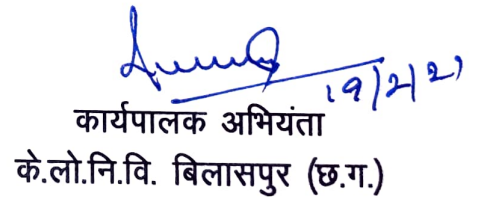 19/2/21
कार्यपालक अभियंता
के.लो.नि.वि. बिलासपुर (छ.ग.)